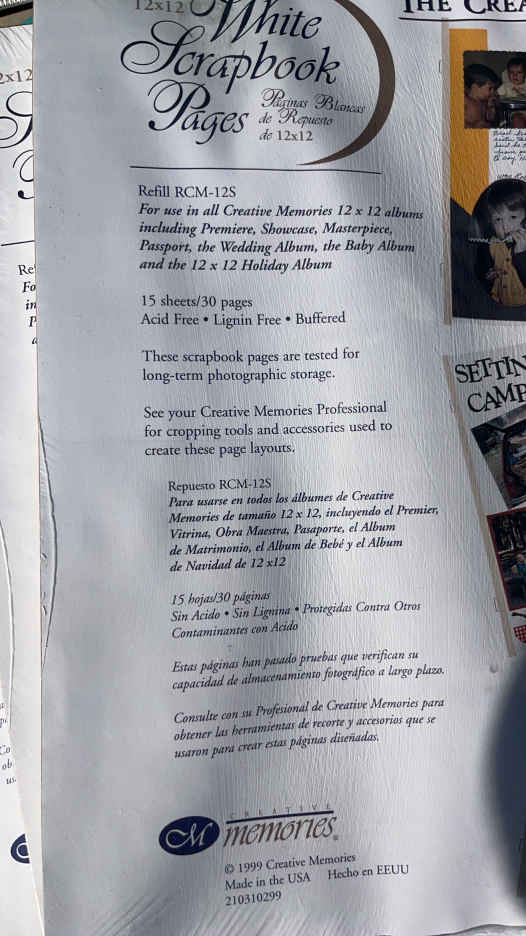 12x12
White
Scrapbook
Pages
Páginas Blancas
de Repuesto
de 12x12
Refill RCM-12S
For use in all Creative Memories 12 x 12 albums
including Premiere, Showcase, Masterpiece,
Passport, the Wedding Album, the Baby Album
and the 12 x 12 Holiday Album
15 sheets/30 pages
Acid Free • Lignin Free • Buffered
These scrapbook pages are tested for
long-term photographic storage.
See your Creative Memories Professional
for cropping tools and accessories used to
create these page layouts.
Repuesto RCM-12S
Para usarse en todos los álbumes de Creative
Memories de tamaño 12 x 12, incluyendo el Premier,
Vitrina, Obra Maestra, Pasaporte, el Album
de Matrimonio, el Album de Bebé y el Album
de Navidad de 12 x12
15 hojas/30 páginas
Sin Acido • Sin Lignina • Protegidas Contra Otros
Contaminantes con Acido
Estas páginas han pasado pruebas que verifican su
capacidad de almacenamiento fotográfico a largo plazo.
Consulte con su Profesional de Creative Memories para
obtener las herramientas de recorte y accesorios que se
usaron para crear estas páginas diseñadas.
CM
CREATIVE
memories®
© 1999 Creative Memories
Made in the USA Hecho en EEUU
210310299
THE CREA
SETTIN
CAMP